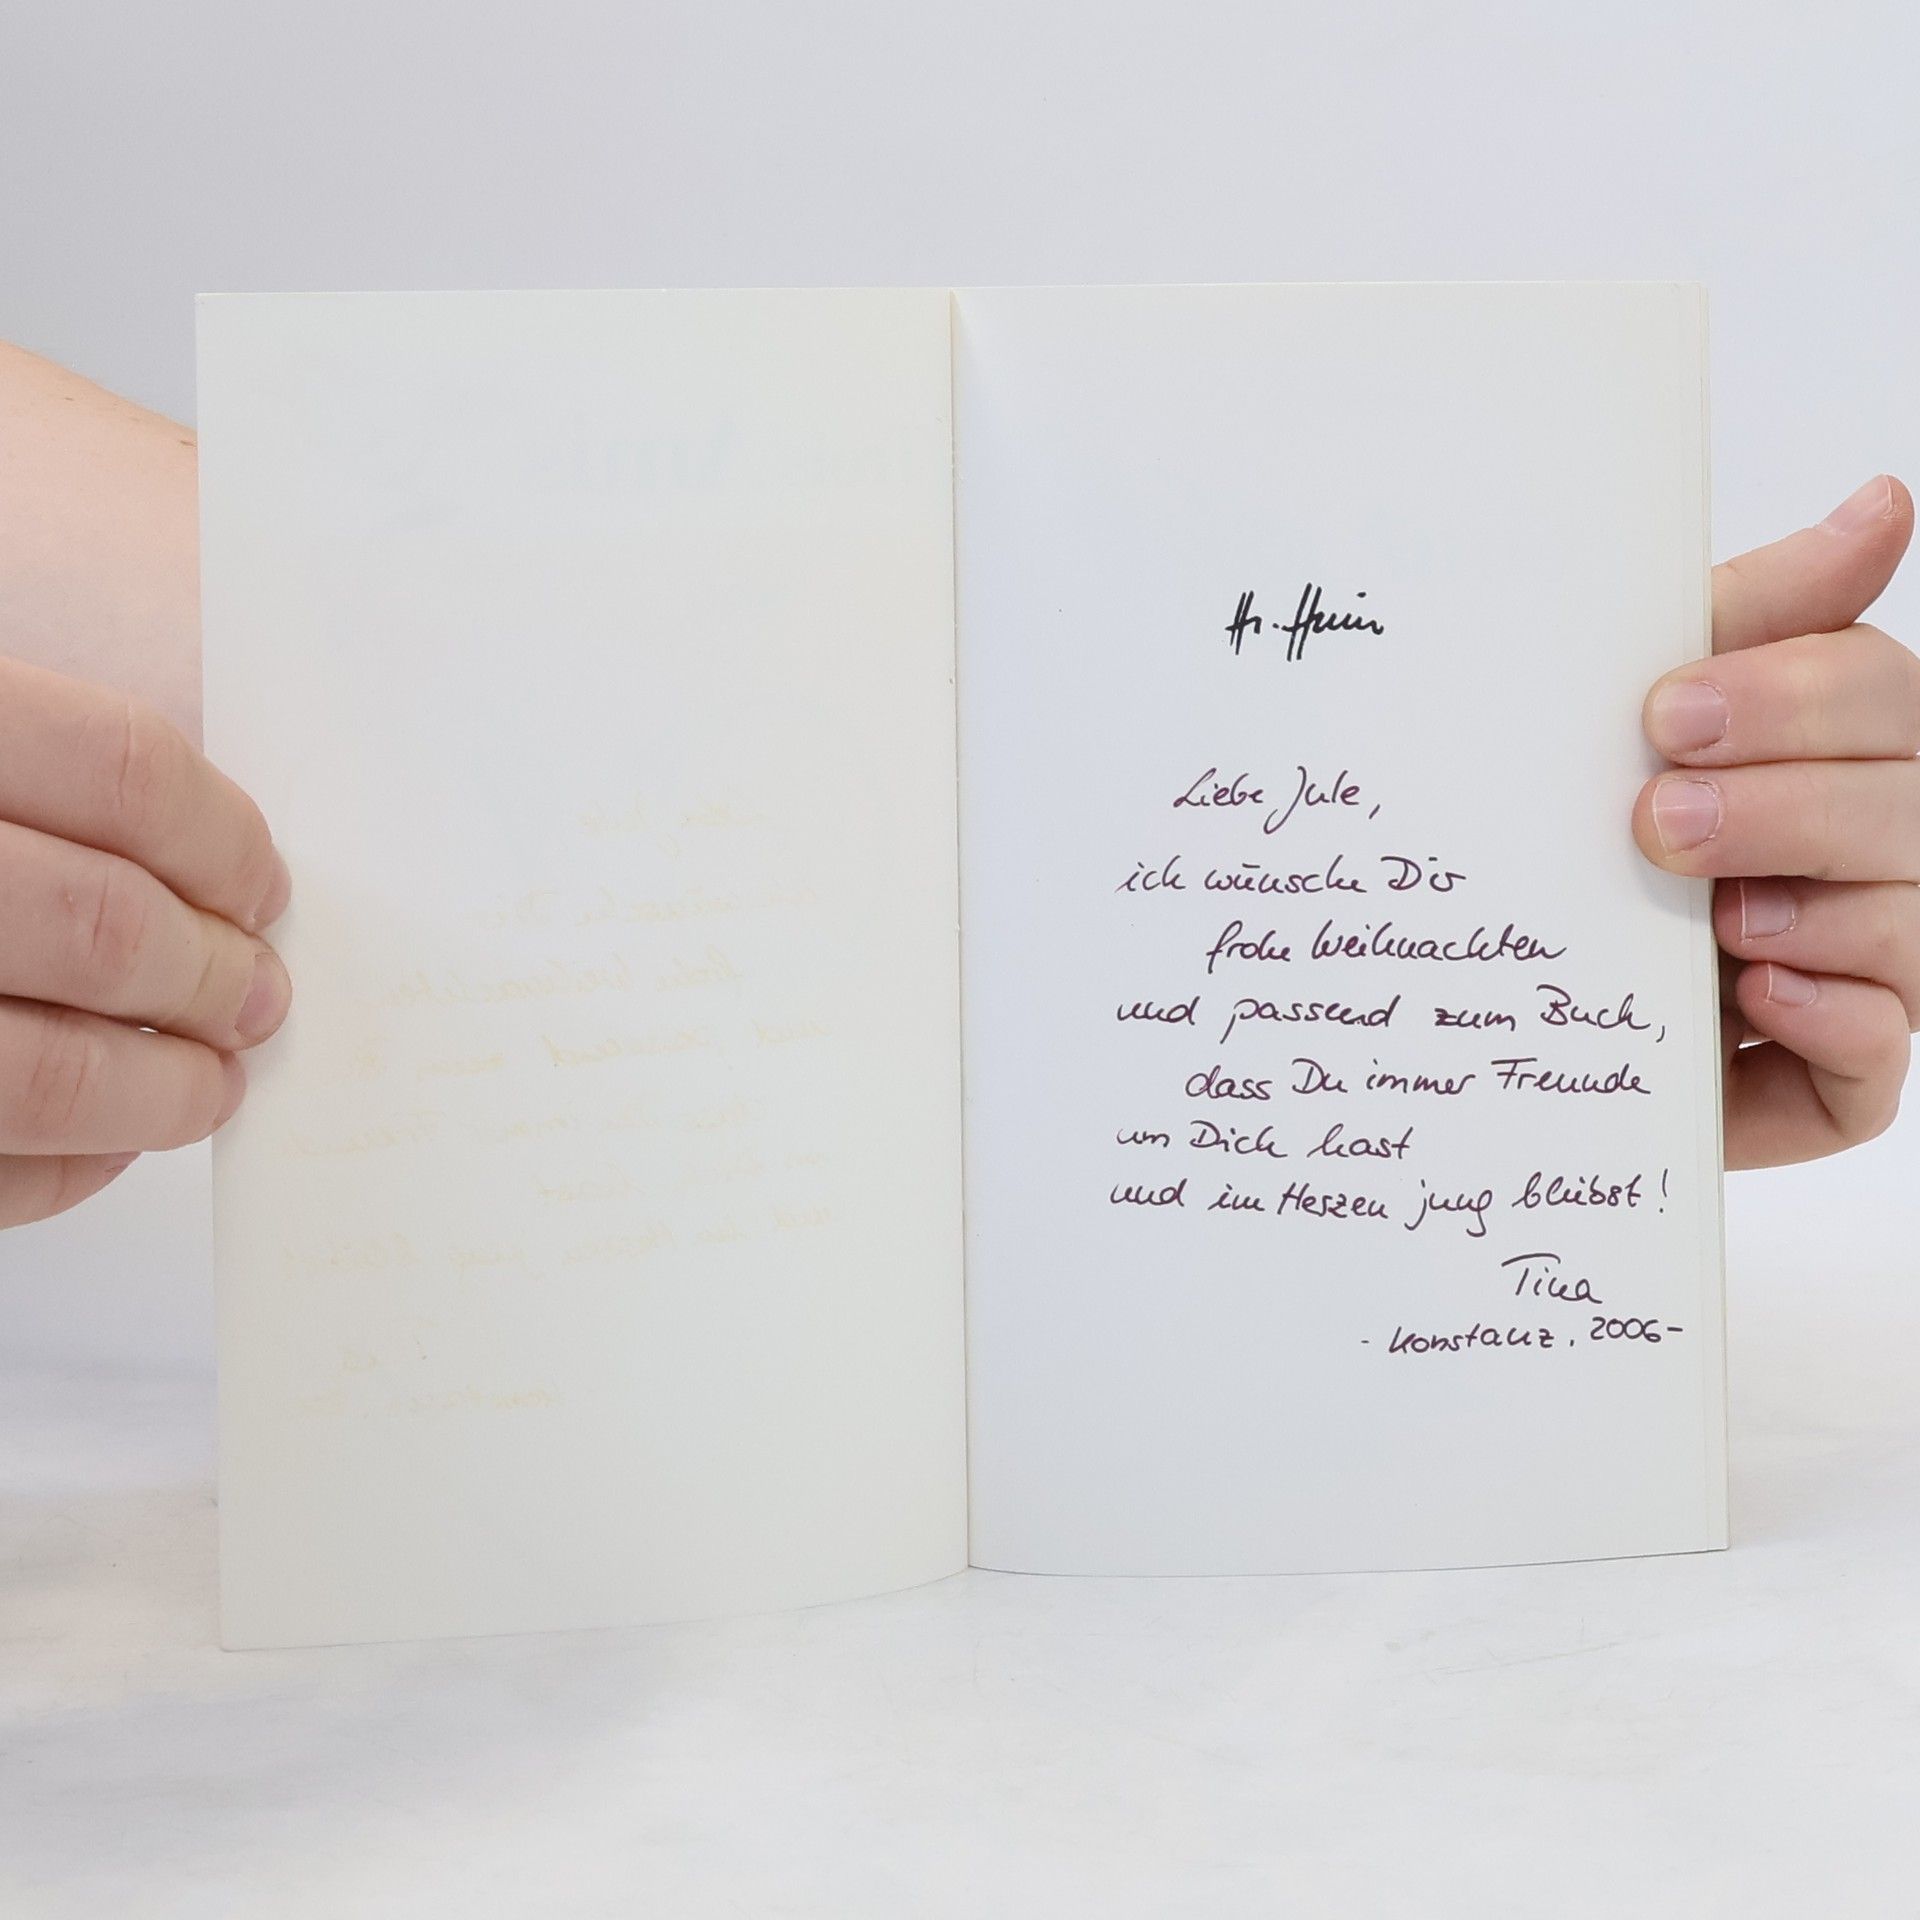 Liebe Jule,
ich wünsche Dir
frohe Weihnachten
und passend zum Buch,
dass Du immer Freunde
um Dich hast
und im Herzen jung bleibst!
Tina
- Konstanz, 2006 -